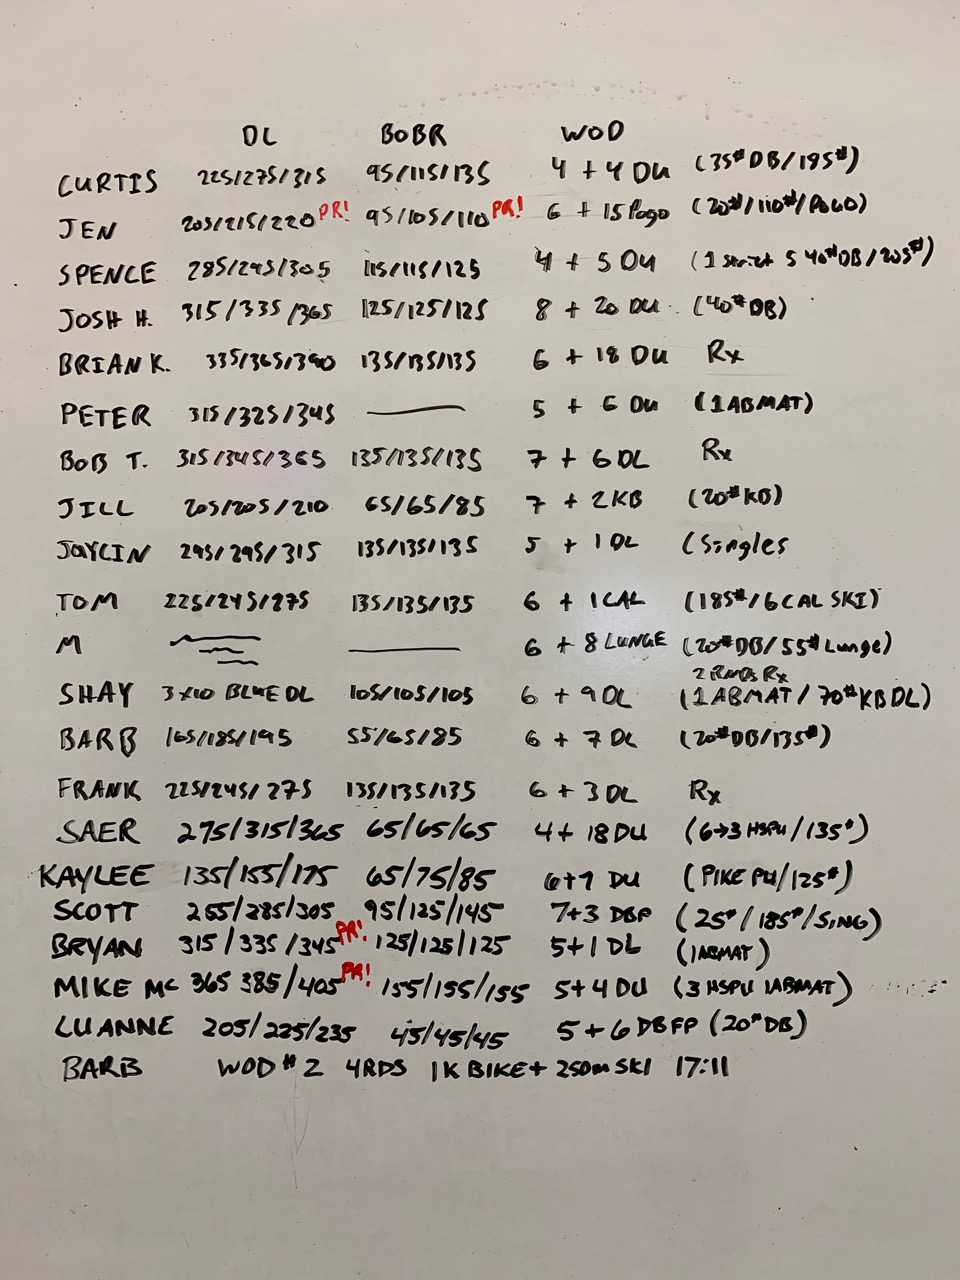 DL BOBR WOD
CURTIS 225/275/315 95/115/135 4 + 4 DU (35# DB/195#)
JEN 205/215/220 PR! 95/105/110 PR! 6 + 15 Pogo (20#/110#/POGO)
SPENCE 285/295/305 115/115/125 4 + 5 DU (1 strict 5 40# DB/205#)
JOSH H. 315/335/365 125/125/125 8 + 20 DU (40# DB)
BRIAN K. 335/365/390 135/135/135 6 + 18 DU Rx
PETER 315/325/345 — 5 + 6 DU (1 ABMAT)
BOB T. 315/345/365 135/135/135 7 + 6 DL Rx
JILL 205/205/210 65/65/85 7 + 2 KB (20# KB)
JAYCIN 295/295/315 135/135/135 5 + 1 DL (Singles
TOM 225/245/275 135/135/135 6 + 1 CAL (185#/6 CAL SKI)
M — 6 + 8 LUNGE (20# DB/55# Lunge)
2 RNDS Rx
SHAY 3x10 BLUE DL 105/105/105 6 + 9 DL (1 ABMAT / 70# KB DL)
BARB 165/185/195 55/65/85 6 + 7 DL (20# DB/135#)
FRANK 225/245/275 135/135/135 6 + 3 DL Rx
SAER 275/315/365 65/65/65 4 + 18 DU (6→3 HSPU/135#)
KAYLEE 135/155/175 65/75/85 6+9 DU (PIKE PU/125#)
SCOTT 265/285/305 95/125/145 7+3 DBP (25#/185#/SING)
BRYAN 315/335/345 PR! 125/125/125 5+1 DL (1ABMAT)
MIKE Mc 365 385/405 PR! 155/155/155 5+4 DU (3 HSPU 1ABMAT)
LUANNE 205/225/235 45/45/45 5 + 6 DBFP (20# DB)
BARB WOD #2 4RDS 1K BIKE + 250m SKI 17:11